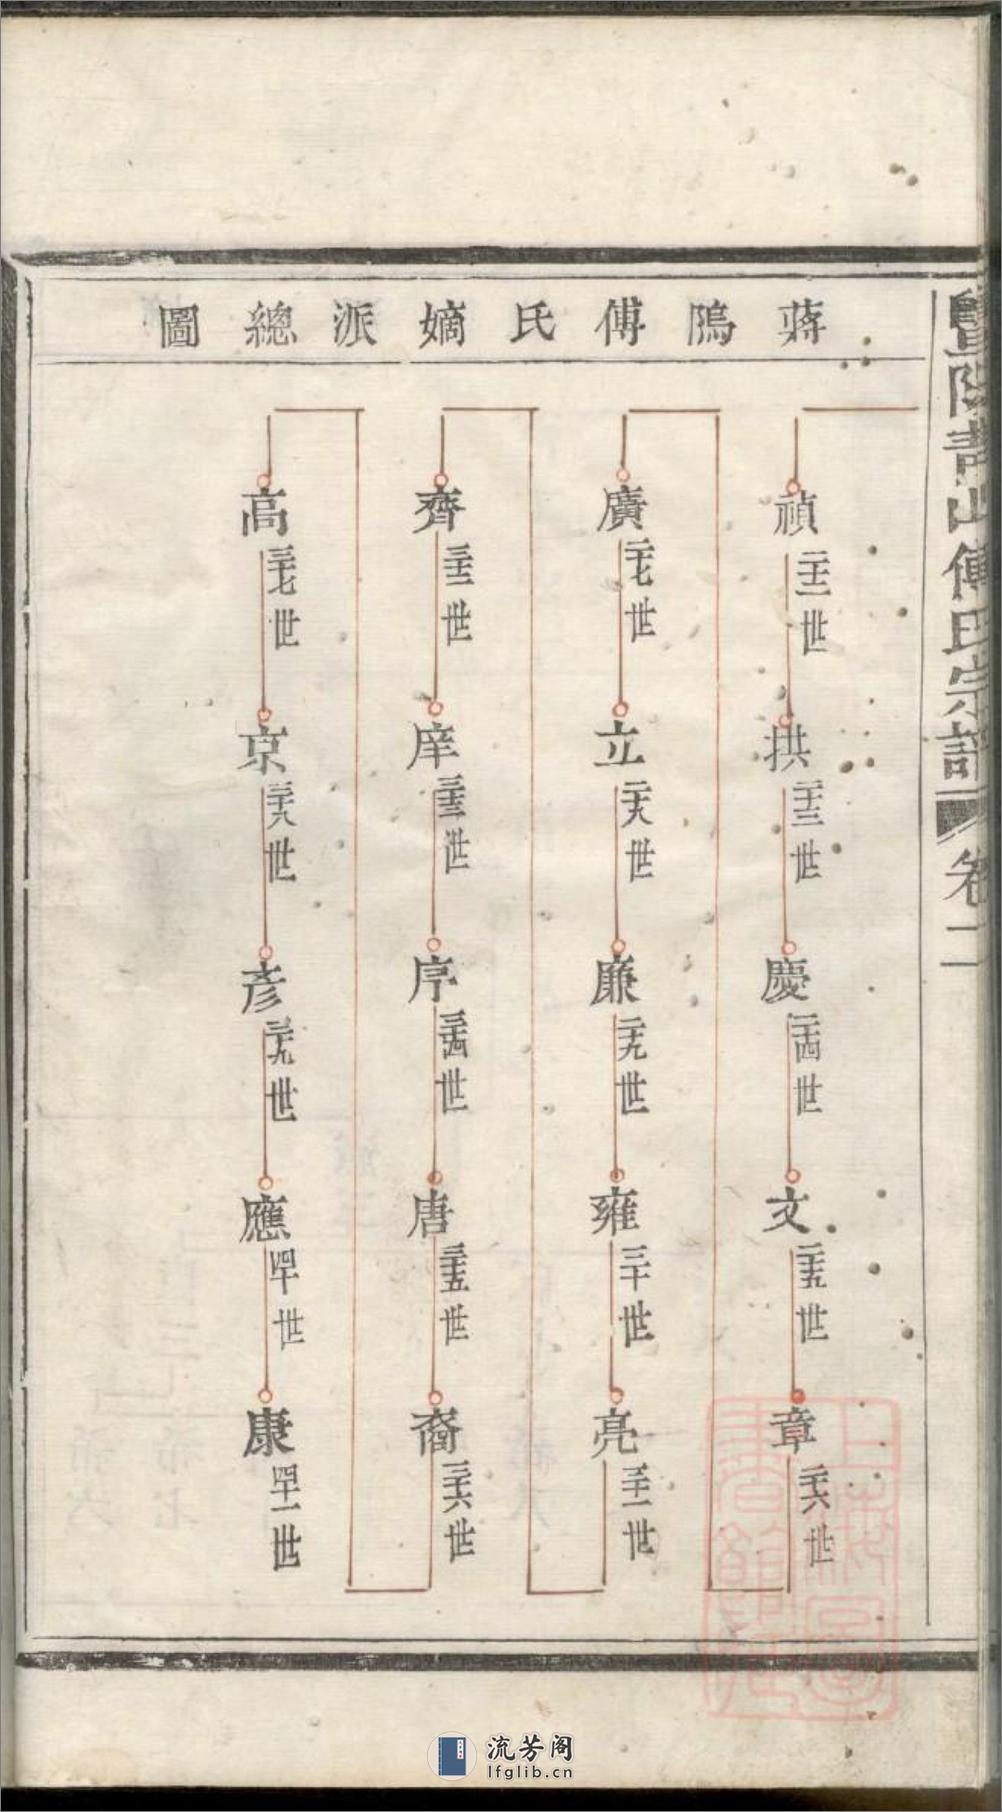 暨陽青山傅氏宗譜
卷二
蔣隖傅氏嫡派總圖
禎 二十二世
拱 二十三世
慶 二十四世
文 二十五世
章 二十六世
廣 二十七世
立 二十八世
廉 二十九世
雍 三十世
亮 三十一世
齊 三十二世
庠 三十三世
序 三十四世
唐 三十五世
裔 三十六世
高 三十七世
京 三十八世
彥 三十九世
應 四十世
康 四十一世
上海圖書館藏
流芳阁
lfglib.cn